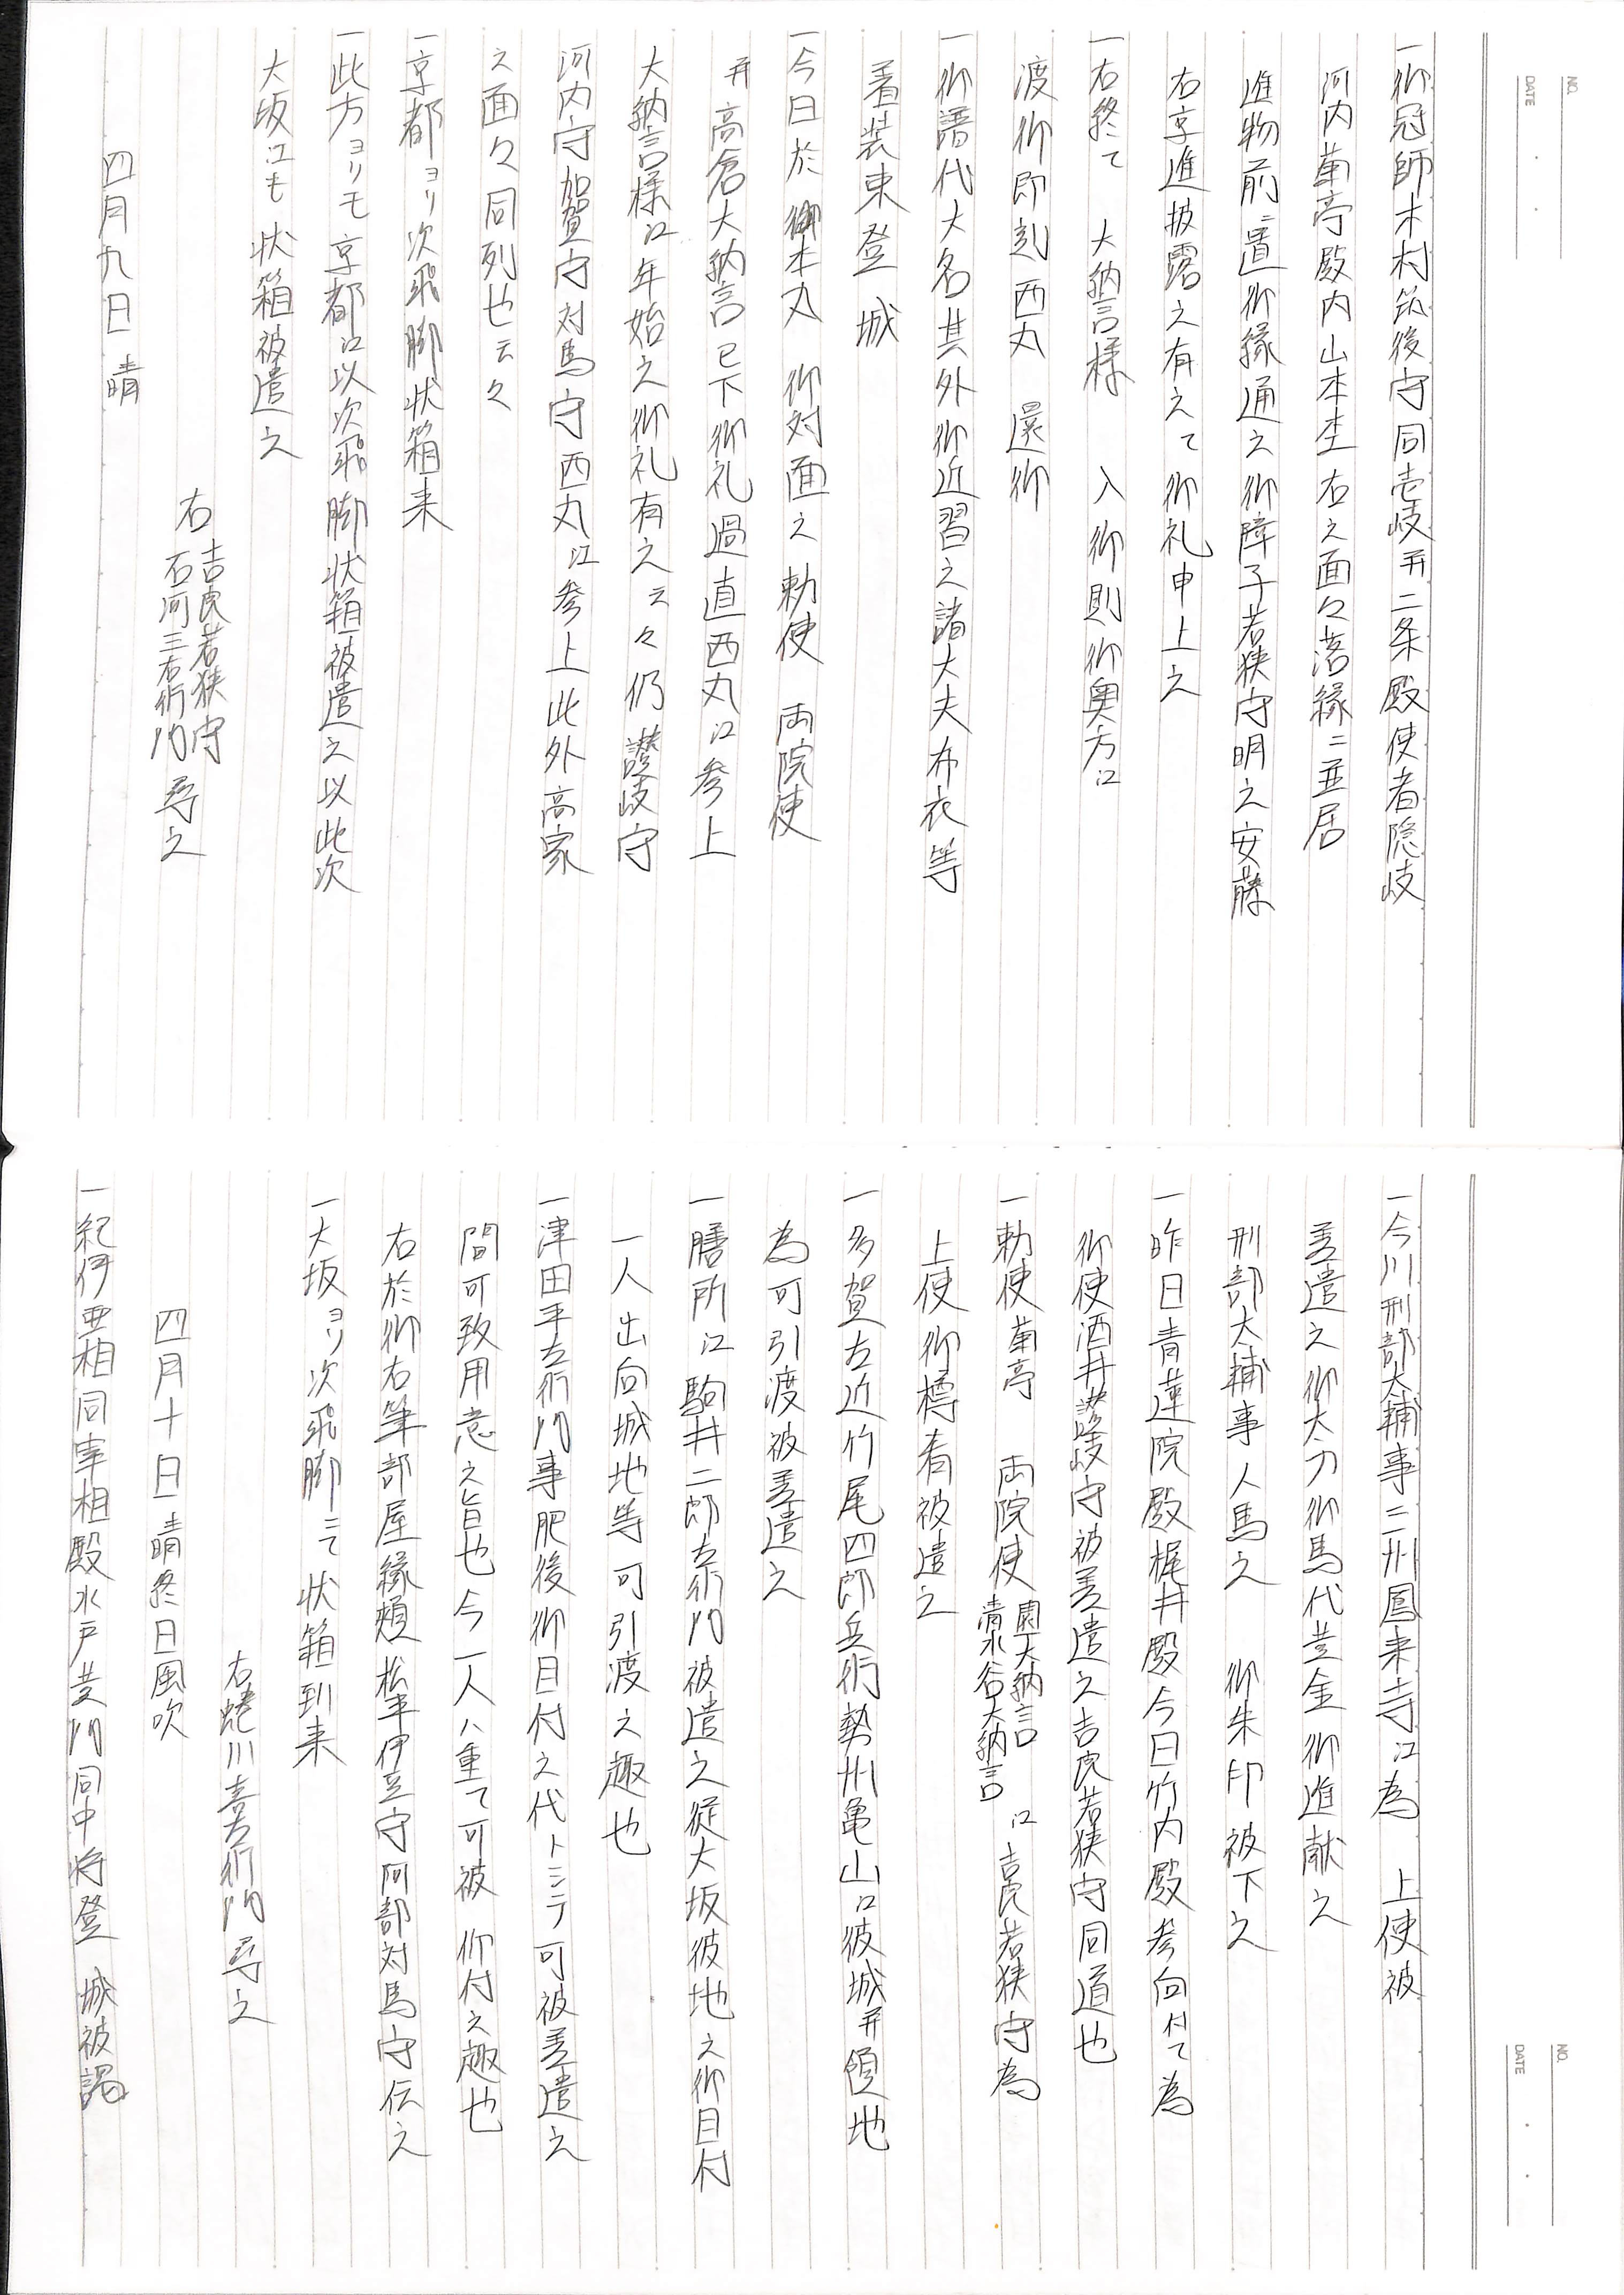 NO.
DATE
一御冠師木村筑後守同壱岐并二条殿使者隠岐
河内菊亭殿内山本杢右之面々落縁ニ並居
進物前ニ置御縁通之御障子若狭守明之安藤
右京進披露之有之て御礼申上之
一右終て 大納言様 入御則御奥方江
渡御即刻西丸 還御
一御譜代大名其外御近習之諸大夫布衣等
着装束登 城
一今日於御本丸 御対面之 勅使 両院使
并高倉大納言已下御礼過直西丸江参上
大納言様江年始之御礼有之云々仍讃岐守
河内守加賀守対馬守西丸江参上此外高家
之面々同列也云々
一京都ヨリ次飛脚状箱来
一此方ヨリモ京都江以次飛脚状箱被遣之以此次
大坂江も状箱被遣之
右 吉良若狭守 石河三右衛門 尋之
四月九日 晴
NO.
DATE
一今川刑部大輔事三州鳳来寺江為 上使被
差遣之御太刀御馬代黄金御進献之
刑部大輔事人馬之 御朱印被下之
一昨日青蓮院殿梶井殿今日竹内殿参向付て為
御使酒井讃岐守被差遣之吉良若狭守同道也
一勅使菊亭 両院使 園大納言 清水谷大納言 江吉良若狭守為
上使御樽肴被遣之
一多賀左近竹尾四郎兵衛勢州亀山江彼城并領地
為可引渡被差遣之
一膳所江駒井二郎左衛門被遣之従大坂彼地之御目付
一人出向城地等可引渡之趣也
一津田平左衛門事肥後御目付之代トシテ可被差遣之
間可致用意之旨也今一人ハ重て可被 仰付之趣也
右於御右筆部屋縁頬松平伊豆守阿部対馬守伝之
一大坂ヨリ次飛脚ニて状箱到来
右蜷川喜左衛門尋之
四月十日晴終日風吹
一紀伊亜相同宰相殿水戸黄門同中将登 城被謁